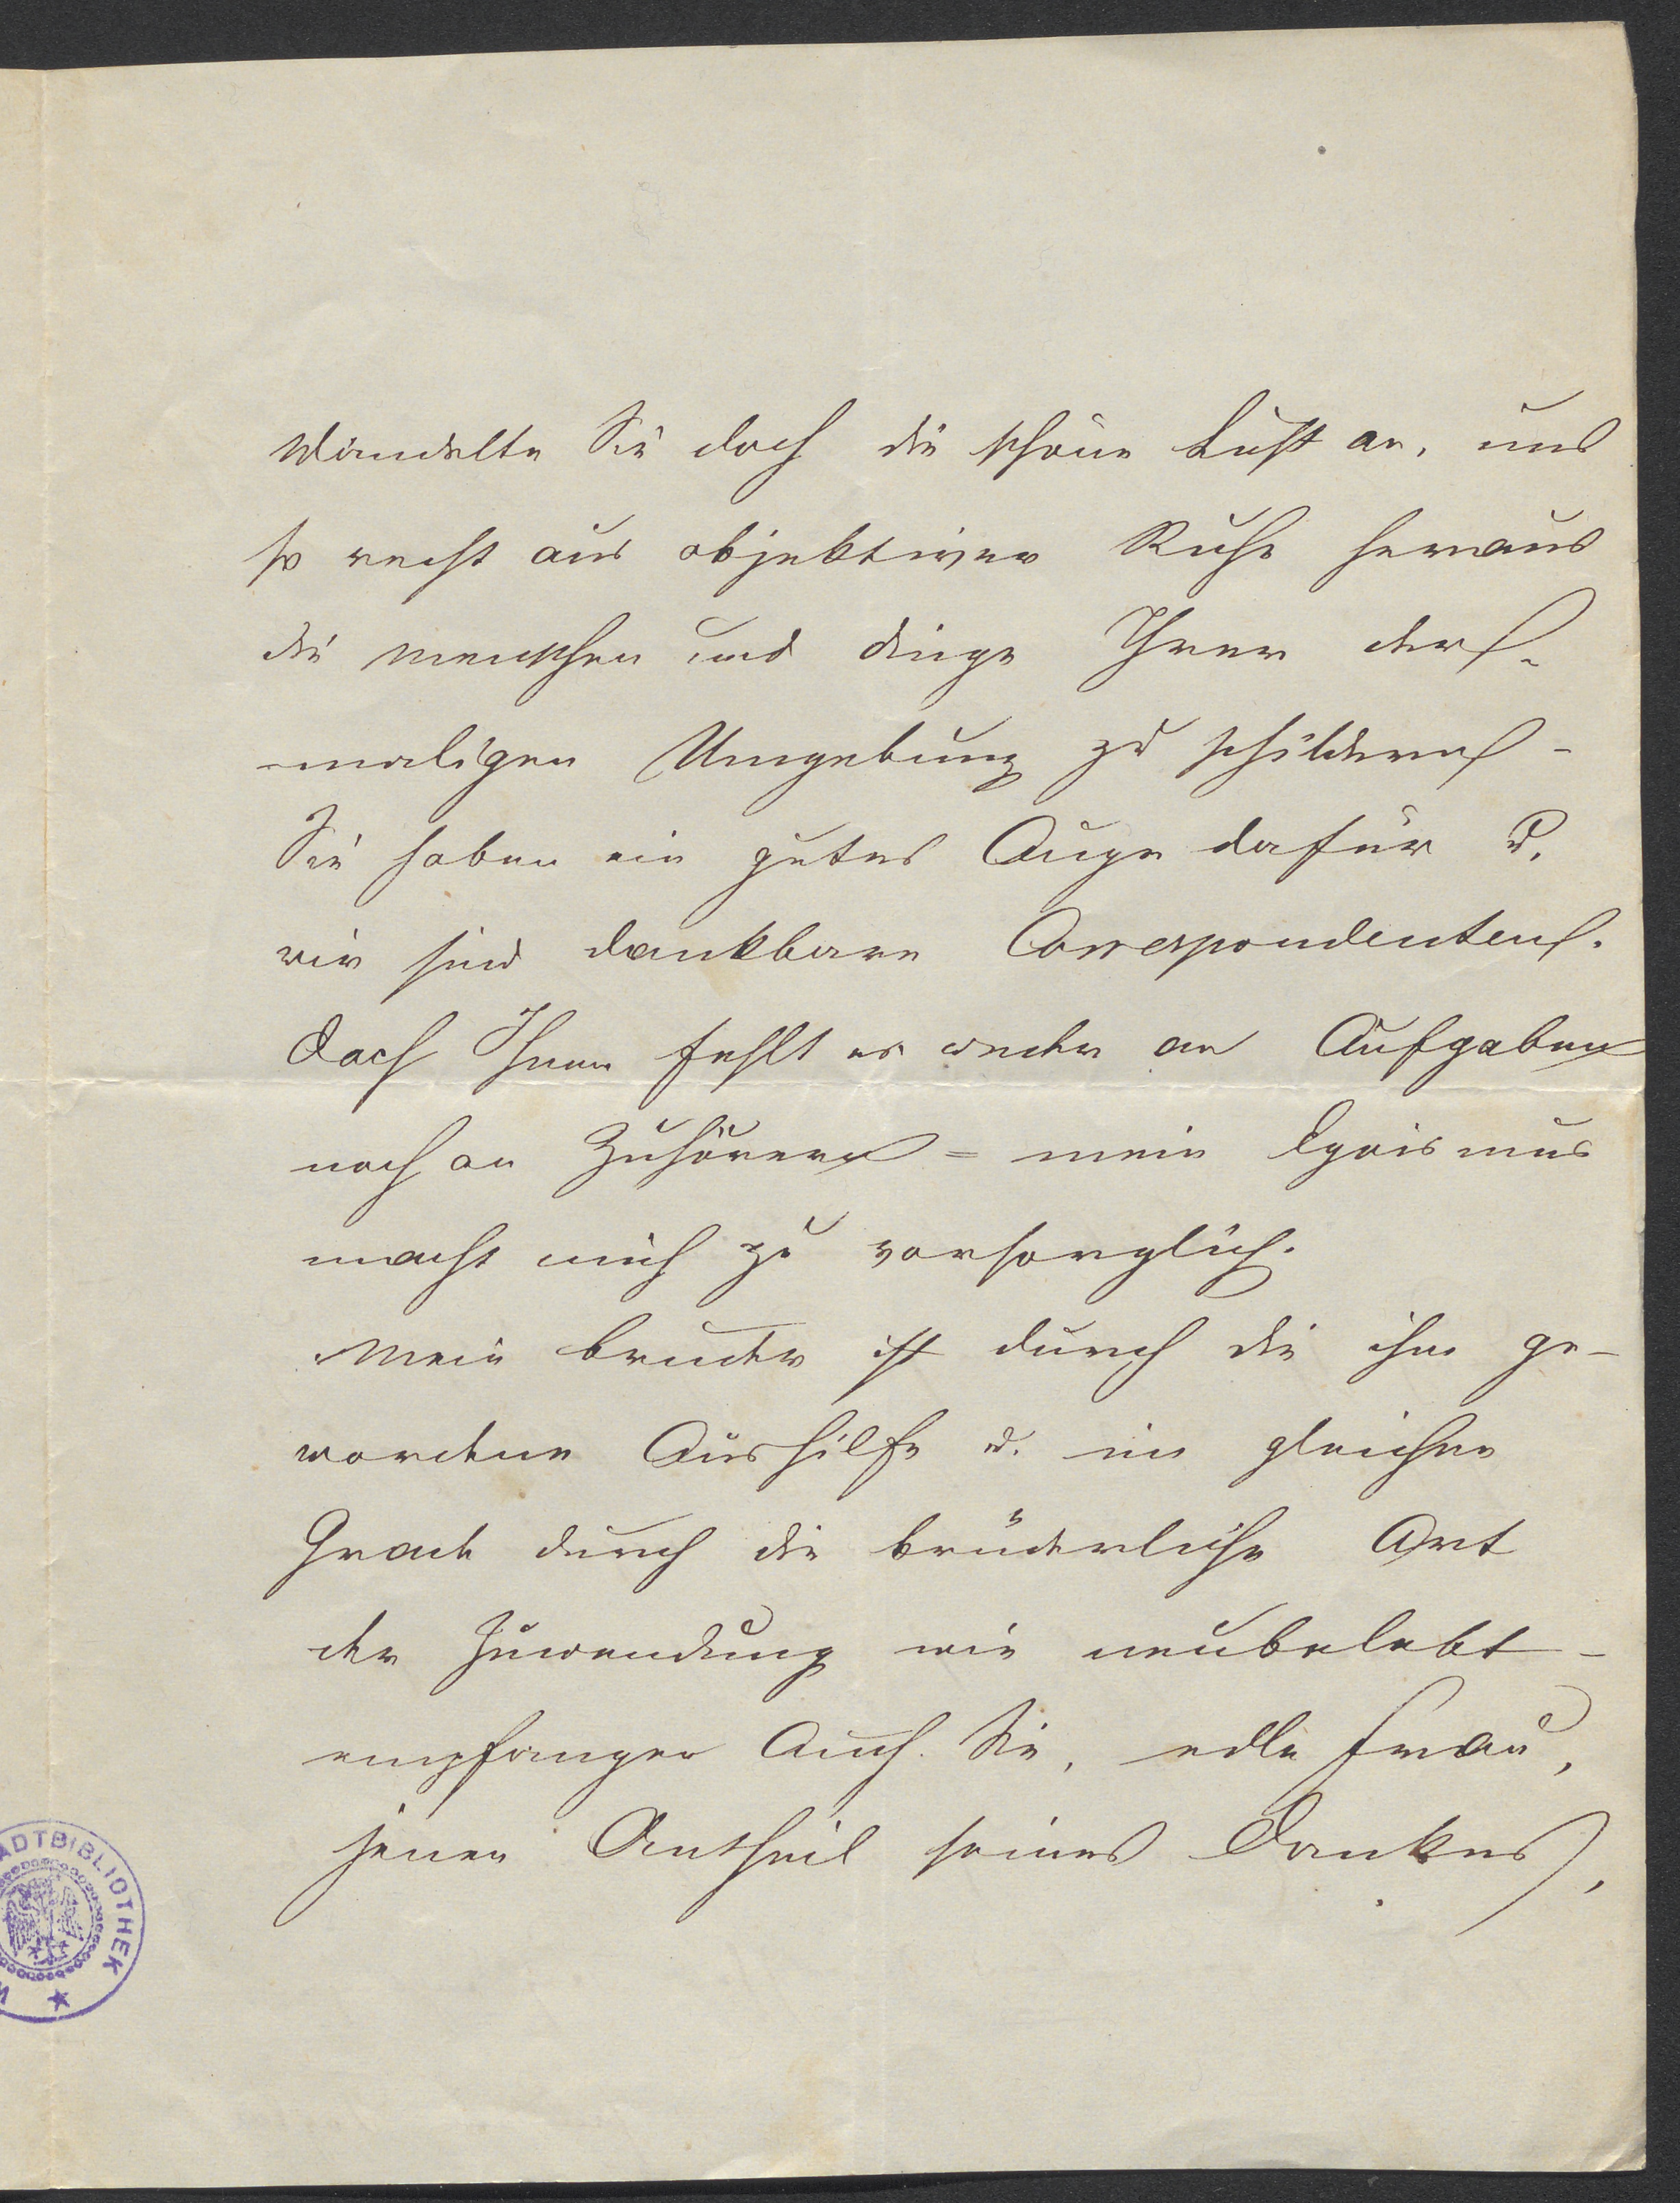 Wandelte Sie doch die schöne Lust an, uns
so recht aus objektiver Ruhe heraus
die Menschen und Dinge Ihrer der-
-maligen Umgebung zu schildern -
Sie haben ein gutes Auge dafür u.
wir sind dankbare Correspondenten.
Doch Ihnen fehlt es weder an Aufgaben
noch an Zuhörern = mein Egoismus
macht mich zu vorsorglich.
Mein Bruder ist durch die ihm ge-
wordene Aushilfe u. im gleichen
Grade durch die brüderliche Art
der Zuwendung wie neubelebt -
empfangen Auch Sie, edle Frau,
jenen Antheil seines Dankes,
ADTBIBLIOTHEK